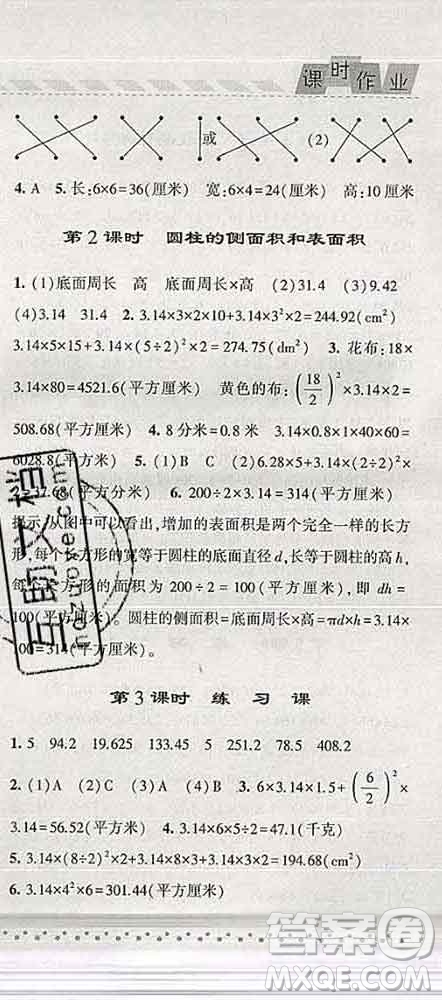 课时作业
或 (2)
4. A 5. 长:6×6=36(厘米) 宽:6×4=24(厘米) 高:10厘米
第2课时 圆柱的侧面积和表面积
1. (1)底面周长 高 底面周长×高 (2)31.4 (3)9.42
(4)3.14 31.4 2. 3.14×3×2×10+3.14×3²×2=244.92(cm²)
3.14×5×15+3.14×(5÷2)²×2=274.75(dm²) 3. 花布:18×
3.14×80=4521.6(平方厘米) 黄色的布:(18/2)²×3.14×2=
508.68(平方厘米) 4. 8分米=0.8米 3.14×0.8×1×40×60=
6028.8(平方米) 5. (1)B C (2)6.28×5+3.14×(2÷2)²×
2=37.68(平方分米) 6. 200÷2×3.14=314(平方厘米)
提示:从图中可以看出,增加的表面积是两个完全一样的长方
形,每个长方形的宽等于圆柱的底面直径d,长等于圆柱的高h,
每个长方形的面积为200÷2=100(平方厘米),即 dh=
100(平方厘米)。圆柱的侧面积=底面周长×高=πd×h=3.14×
100=314(平方厘米)。
第3课时 练习课
1. 5 94.2 19.625 133.45 5 251.2 78.5 408.2
2. (1)A (2)C (3)A 3. 6×3.14×1.5+(6/2)²×
3.14=56.52(平方米) 4. 3.14×6×5÷2=47.1(千克)
5. 3.14×(8÷2)²×2+3.14×8×3+3.14×3×2=194.68(cm²)
6. 3.14×4²×6=301.44(平方厘米)
答案圈
MXQE.COM